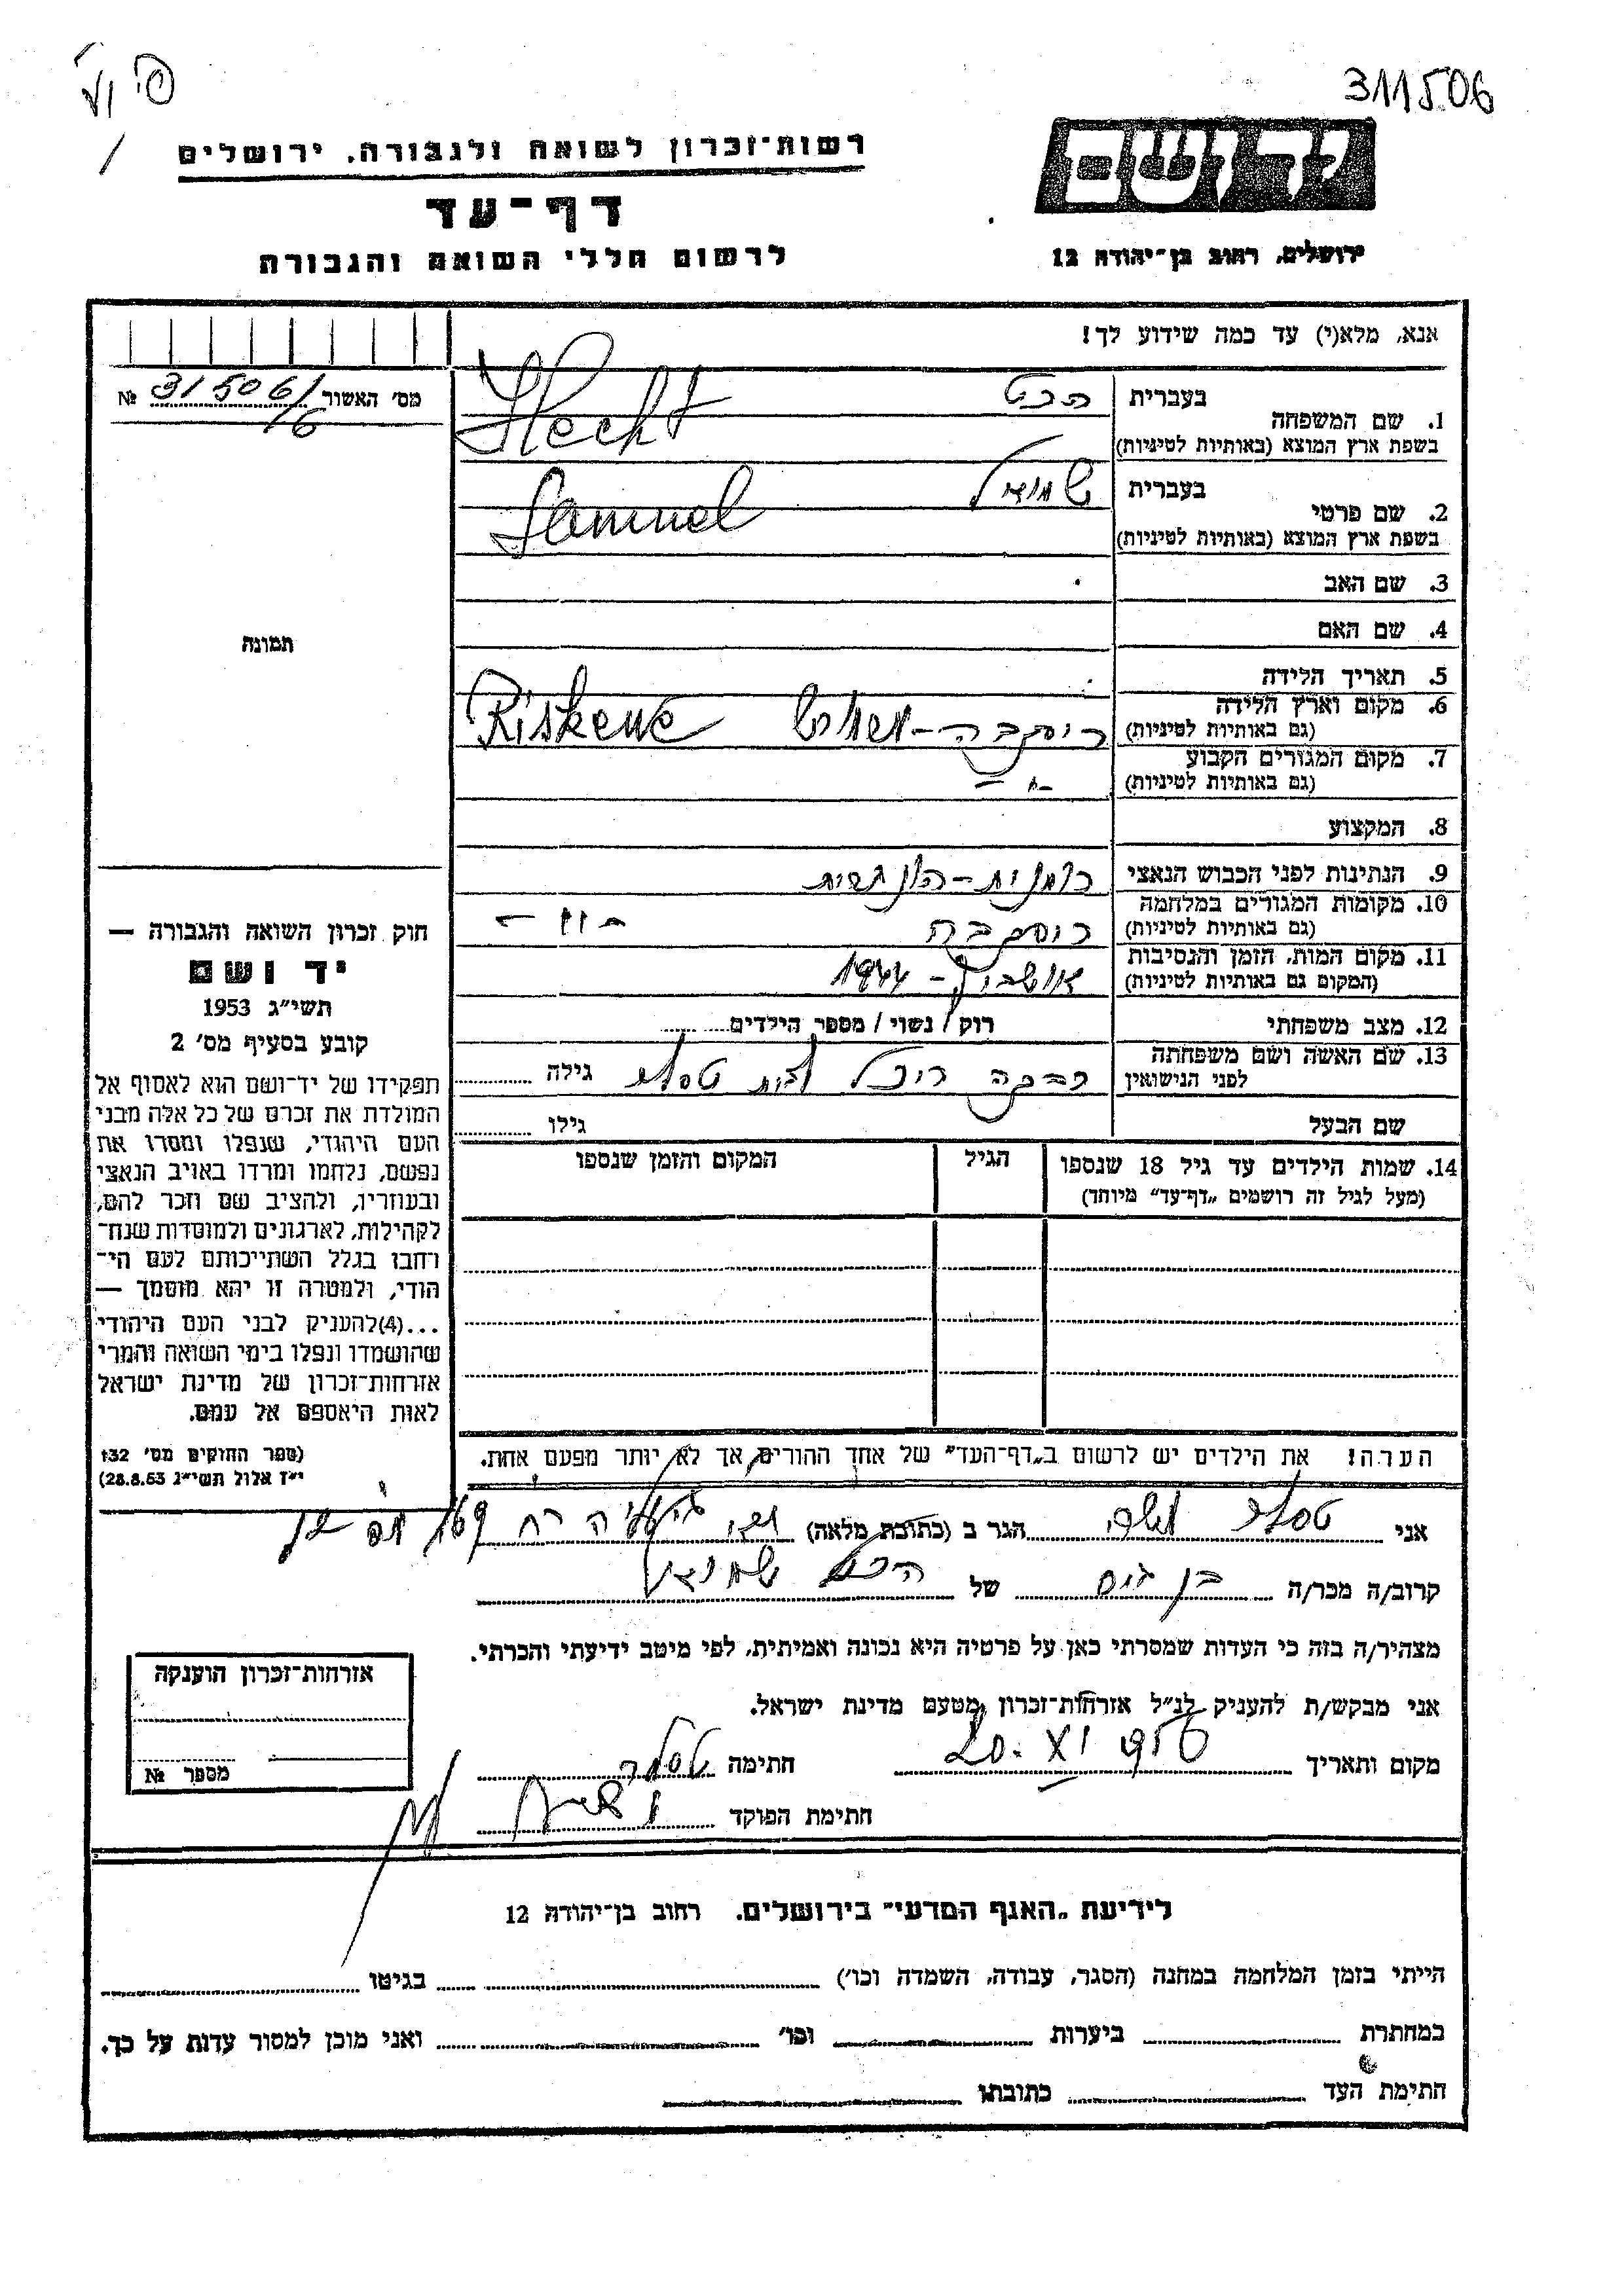 311506
רשות-זכרון לשואה ולגבורה, ירושלים
יד ושם
דף-עד
לרשום חללי השואה והגבורה
ירושלים, רחוב בן-יהודה 12
אנא, מלא(י) עד כמה שידוע לך!
מס׳ האשור 31506/16 №
תמונה
1. שם המשפחה בעברית הכט
בשפת ארץ המוצא (באותיות לטיניות) Hecht
2. שם פרטי בעברית שמואל
בשפת ארץ המוצא (באותיות לטיניות) Samuel
3. שם האב
4. שם האם
5. תאריך הלידה
6. מקום וארץ הלידה
(גם באותיות לטיניות) Riskeve
7. מקום המגורים הקבוע
(גם באותיות לטיניות) -"-
8. המקצוע
9. הנתינות לפני הכבוש הנאצי רומנית-הונגרית
10. מקומות המגורים במלחמה
(גם באותיות לטיניות)
11. מקום המות, הזמן והנסיבות
(המקום גם באותיות לטיניות) אושביץ - 1944
12. מצב משפחתי רוק / נשוי / מספר הילדים
13. שם האשה ושם משפחתה
לפני הנישואין רבקה לבית גילה
שם הבעל גילו
14. שמות הילדים עד גיל 18 שנספו הגיל המקום והזמן שנספו
(מעל לגיל זה רושמים „דף-עד" מיוחד)
הערה! את הילדים יש לרשום ב„דף-העד" של אחד ההורים, אך לא יותר מפעם אחת.
חוק זכרון השואה והגבורה —
יד ושם
תשי״ג 1953
קובע בסעיף מס׳ 2
תפקידו של יד-ושם הוא לאסוף אל
המולדת את זכרם של כל אלה מבני
העם היהודי, שנפלו ומסרו את
נפשם, נלחמו ומרדו באויב הנאצי
ובעוזריו, ולהציב שם וזכר להם,
לקהילות, לארגונים ולמוסדות שנח-
רבו בגלל השתייכותם לעם הי-
הודי, ולמטרה זו יהא מוסמך —
...(4)להעניק לבני העם היהודי
שהושמדו ונפלו בימי השואה והמרי
אזרחות-זכרון של מדינת ישראל
לאות היאספם אל עמם.
(ספר החוקים מס׳ 132
י״ז אלול תשי״ג 28.8.53)
אני הגר ב (כתובת מלאה)
קרוב/ה מכר/ה בן גיס של הכט שמואל
מצהיר/ה בזה כי העדות שמסרתי כאן על פרטיה היא נכונה ואמיתית, לפי מיטב ידיעתי והכרתי.
אני מבקש/ת להעניק לנ״ל אזרחות-זכרון מטעם מדינת ישראל.
מקום ותאריך 20. XI חתימה
חתימת הפוקד
אזרחות-זכרון הוענקה
מספר №
לידיעת „האגף המדעי" בירושלים, רחוב בן-יהודה 12
הייתי בזמן המלחמה במחנה (הסגר, עבודה, השמדה וכו׳) בגיטו
במחתרת ביערות וכו׳ ואני מוכן למסור עדות על כך.
חתימת העד כתובתו